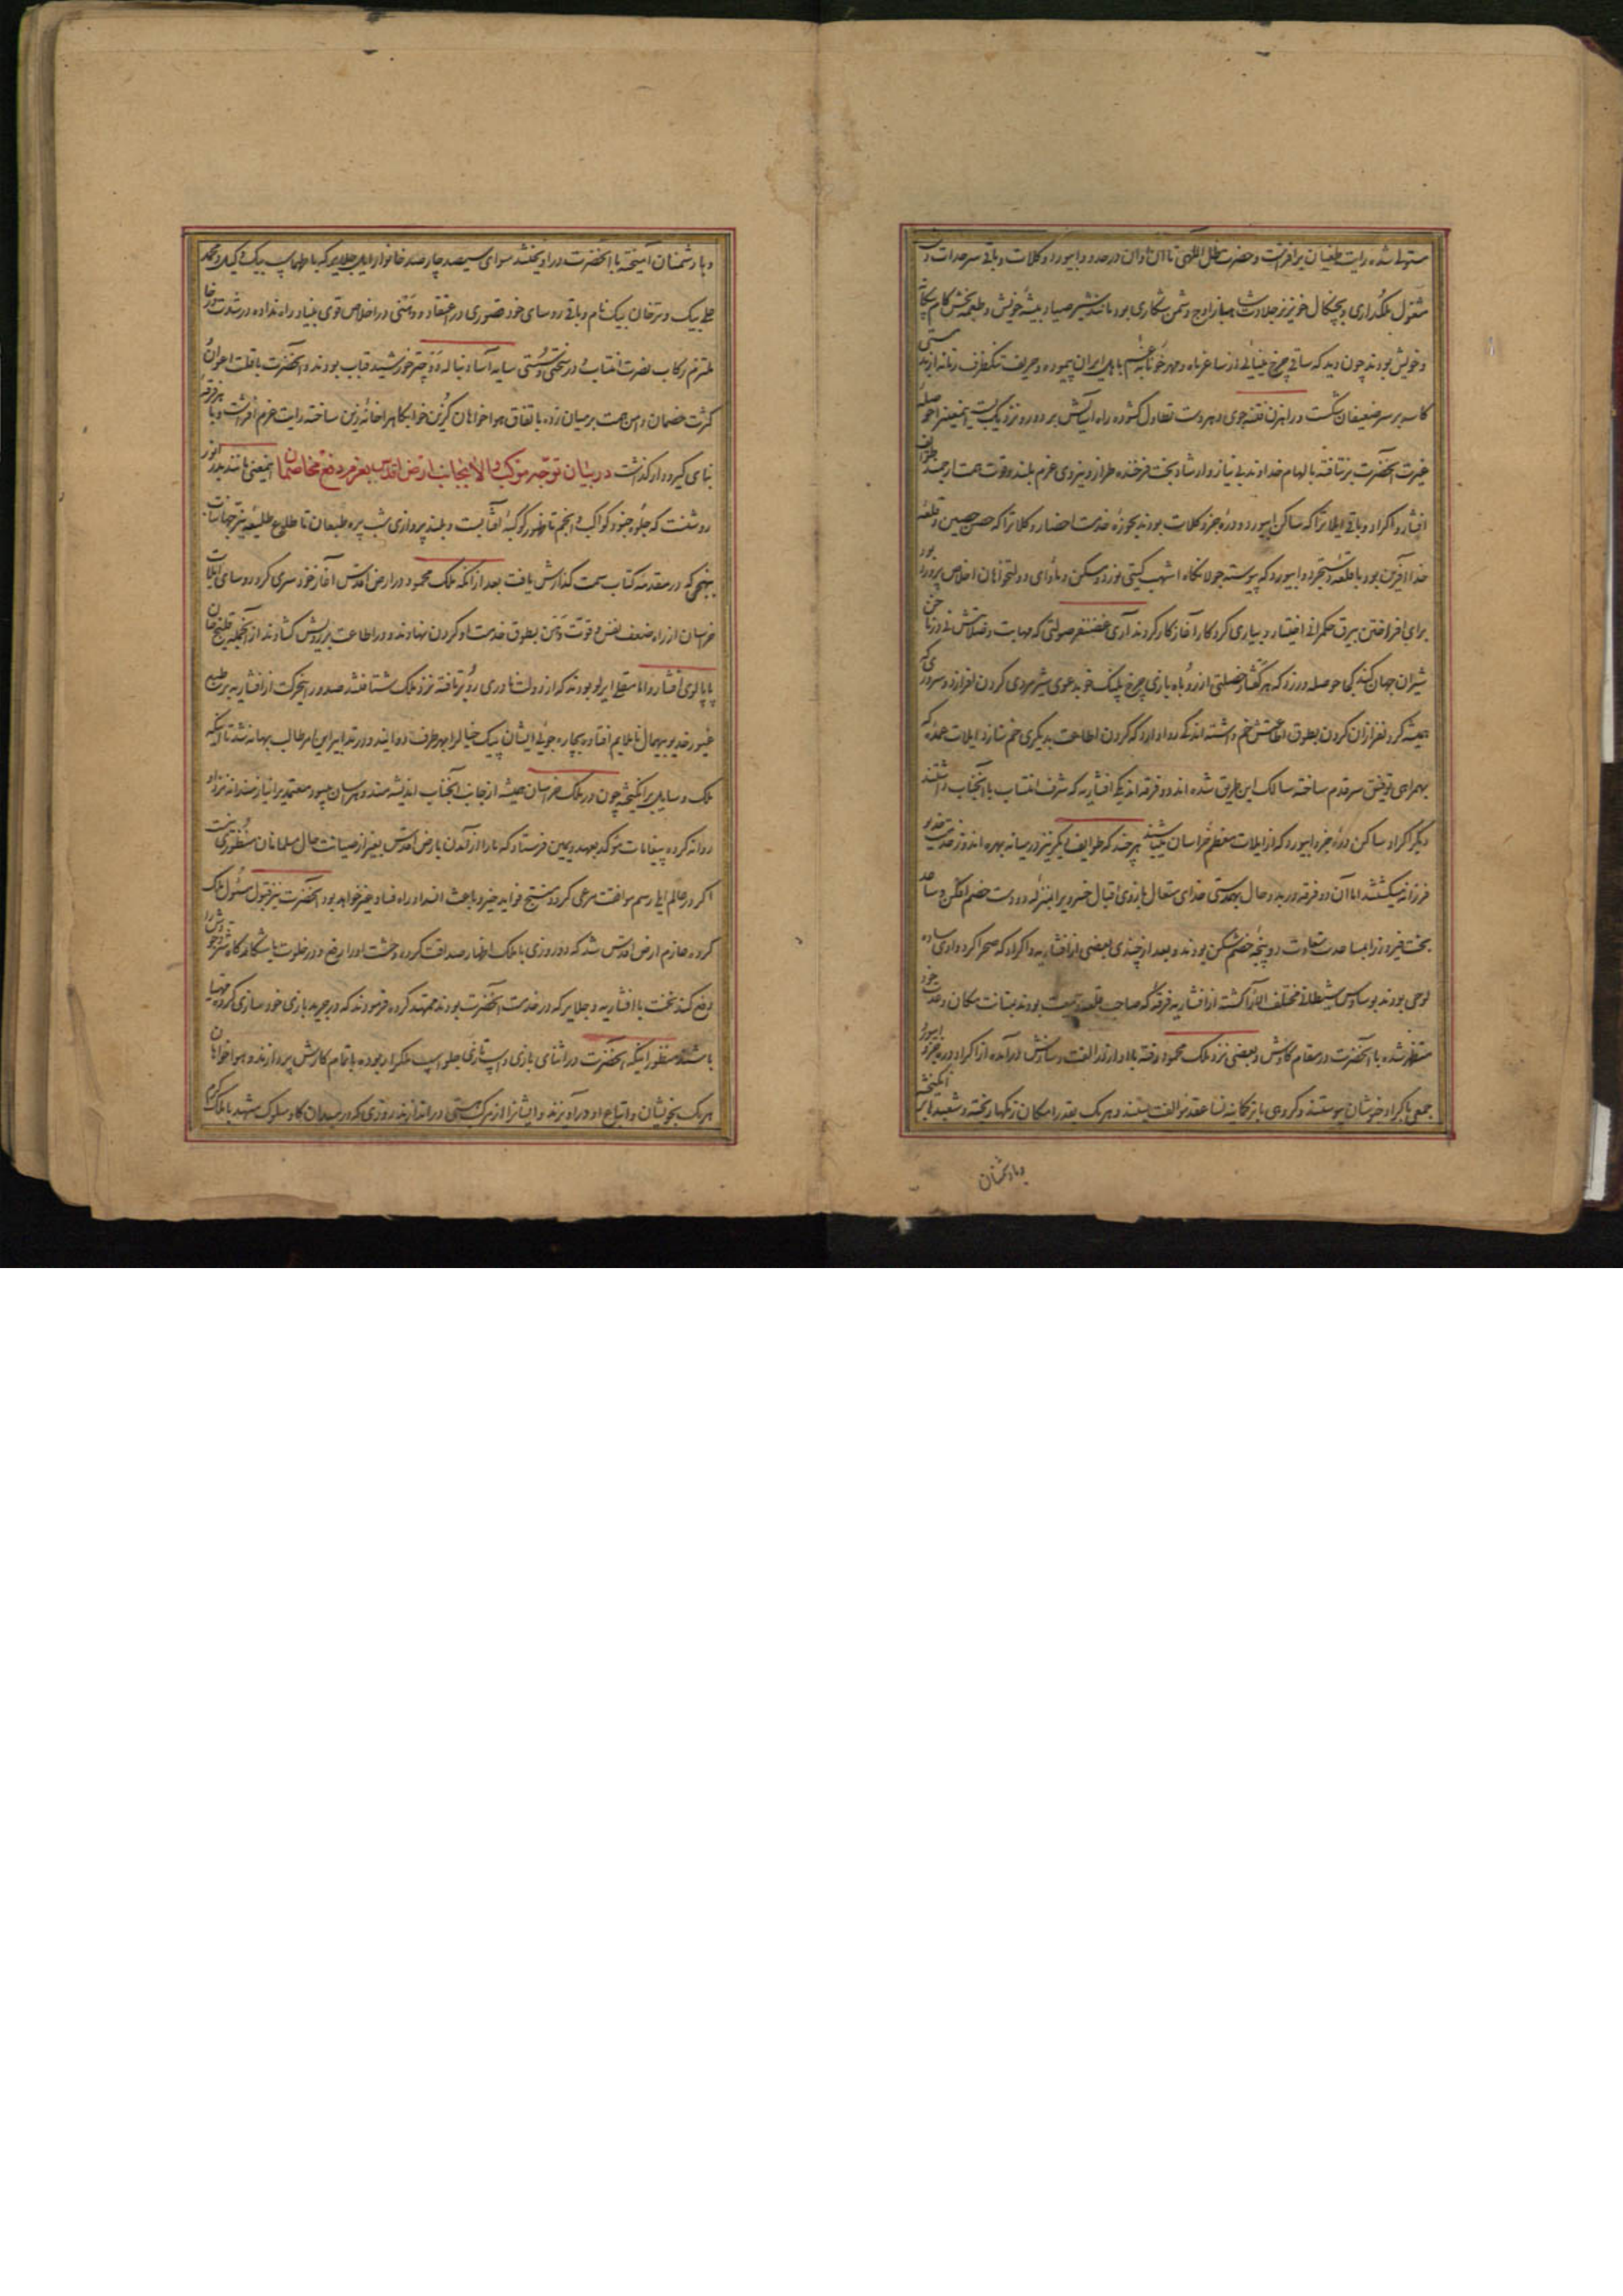 مستولی شده رایت طغیان برافراشت و حضرت ظل اللهی تا آن اوان در حدود ابیورد و کلات و باقی سرحدات
مشغول ملکداری و بچنگال خونریز جلادت شاهباز اوج دشمن شکاری بود مانند شیر صیاد بیشه خویش و طعمه بخش کام
و خویش بودند چون دید که ساقی چرخ مینایی از ساغر ماه و مهر خونابه غم باهل ایران پیموده و حریف
کاسه بر سر ضعیفان شکست و راهزن فتنه جوی دهر دست تطاول گشوده راه آسایش بر دور و نزدیک بست اینمعنی را حوصله
غیرت آنحضرت برنتافته بالهام خداوند بی نیاز و ارشاد بخت فرخنده طراز و نیروی عزم بلند و قوت همت ارجمند طوایف
افشار و اکراد و باقی ایلات را که ساکن ابیورد و دره جز و کلات بودند بحوزه خدمت احضار و کلات را که حصن حصین و قلعه
خدا آفرین بود با قلعه دستجرد و ابیورد که پیوسته جولانگاه اشهب گیتی نورد و مسکن و ماوای دولتخواهان اخلاص پرور بود
برای افراختن بیرق حکمرانی اختیار و بیاری کردگار آغاز کار کردند آری غضنفر صولتی که مهابت و صلابتش
شیران جهان کند کجا حوصله ورزد که هر گفتار خصلتی از روباه بازی چرخ پلنگ خو بدعوی شیرمردی گردن افرازد و سروری که
همیشه گردنفرازان گردن بطوق اطاعتش خم داشته اند کی روا دارد که گردن اطاعت بدیگری خم سازد ایلات عمده که
بهمراهی توفیق سر قدم ساخته سالک این طریق شده اند دو فرقه اند یکی افشاریه که شرف انتساب با آنجناب داشتند
دیگر اکراد ساکن دره جز و ابیورد که از ایلات معظم خراسان میباشند هر چند که طوایف دیگر نیز در میانه بهره اندوز خدمت خدیو
فرزانه میگشتند اما آن دو فرقه در بدو حال بهمدستی خدای متعال بازوی اقبال خدیو بیهمال را بمنزله دو دست خصم افکن و ساعد
بخت فیروز را بمساعدت سعادت دو پنجه خصم شکن بودند و بعد از چندی بعضی از افشاریه و اکراد که صحرا گرد وادی ساده
لوحی بودند بوساوس شیطانی مختلف الآرا گشته از افشاریه فرقه که صاحب قلعه و جمعیت بودند بمتانت مکان و عدت خود
مستظهر شده با آنحضرت در مقام کاوش و بعضی نزد ملک محمود رفته با او از در الفت و سازش درآمده از اکراد دره جز و ابیورد
جمعی باکراد خبوشان پیوستند و گروهی با ترکمانیه نسا عقد موالفت بستند و هر یک بقدر امکان رنگها ریخته و شعبده ها انگیخته
و با دشمنان
و با دشمنان آمیخته با آنحضرت درآویختند سوای سیصد چهارصد خانوار ایل جلایر که با طهماسب بیک وکیل و محمد
علی بیک و ترخان بیک نام و باقی روسای خود قصوری در اعتقاد و وهنی در اخلاص قوی بنیاد راه نداده در شدت و رخا
ملتزم رکاب نصرت انتساب و در سختی و سستی سایه آسا دنباله رو چتر خورشید قباب بودند و آنحضرت با قلت اعوان و
کثرت خصمان دامن همت بر میان زده باتفاق هواخواهان گزین خوابگاه را خانه زین ساخته رایت عزم افراشت و با هر فرقه
بنای گیر و دار گذاشت در بیان توجه موکب والا بجانب ارض اقدس بعزم دفع مخاصمان اینمعنی مانند بدر انور
روشنست که جلوه جنود کواکب و انجم تا ظهور کوکبه آفتابست و بلند پروازی شب پره طبعان تا طلوع طلیعه نیر جهانتاب
بنهجی که در مقدمه کتاب سمت گذارش یافت بعد از آنکه ملک محمود در ارض اقدس آغاز خودسری کرد روسای ایلات
خراسان از راه ضعف نفس و قوت وهن بطوق خدمت او گردن نهادند و در اطاعت برویش گشادند از آنجمله قلیچ خان
پاپالوی افشار و امام قلی ایرلو بودند که از دولت نادری رو برتافته نزد ملک شتافتند صدور اینحرکت از افشاریه بر طبع
غیور خدیو بیهمال ناملایم افتاده بچاره جویی ایشان پیک خیال را بهر طرف دوانید و در تدابیر این امر طالب بهانه شد تا اینکه
ملک وسایل برانگیخته چون در ملک خراسان همیشه از جانب آنجناب اندیشه مند و هراسان میبود معتمدی را نیازمندانه نزد او
روانه کرده پیغامات موکد بعهد و یمین فرستاد که ما را از آمدن بارض اقدس بغیر از صیانت حال مسلمانان منظوری نیست
اگر در عالم ایلی رسم موافقت مرعی گردد منتج فواید خیر و باعث انسداد راه فساد و ضیر خواهد بود آنحضرت نیز قبول مسئول ملک
کرده عازم ارض اقدس شد که دو روزی با ملک اظهار صداقت کرده وحشت او را رفع و در خلوت یا شکارگاه
دفع کند نخست با افشاریه و جلایر که در خدمت آنحضرت بودند تمهید کرده فرمودند که در جریدبازی خودسازی کرده مهیا
باشند و منظور اینکه آنحضرت در اثنای بازی و اسپ تازی جلو اسپ ملک را ربوده باتمام کارش پردازند و هواخواهان
هر یک بخویشان و اتباع او درآویزند و ایشان را از مرکب هستی دراندازند روزی که در میدان گاه سلوک مشهد با ملک